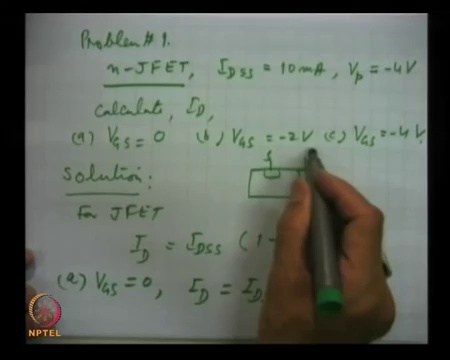 Problem # 1.
n-JFET, I_DSS = 10 mA, V_p = -4V
Calculate, I_D,
(a) V_GS = 0 (b) V_GS = -2V (c) V_GS = -4V.
Solution:
For JFET
I_D = I_DSS (1-
(a) V_GS = 0, I_D = I_D
NPTEL